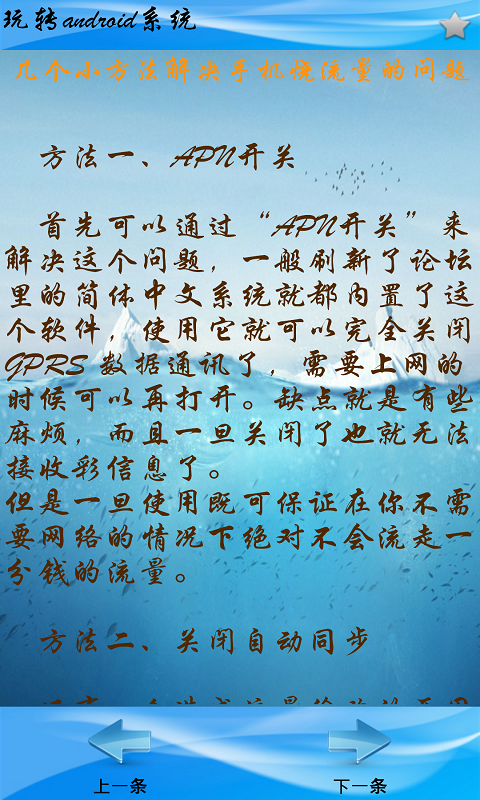 玩转android系统
几个小方法解决手机烧流量的问题
方法一、APN开关
首先可以通过“APN开关”来
解决这个问题，一般刷新了论坛
里的简体中文系统就都内置了这
个软件，使用它就可以完全关闭
GPRS 数据通讯了，需要上网的
时候可以再打开。缺点就是有些
麻烦，而且一旦关闭了也就无法
接收彩信息了。
但是一旦使用既可保证在你不需
要网络的情况下绝对不会流走一
分钱的流量。
方法二、关闭自动同步
上一条
下一条